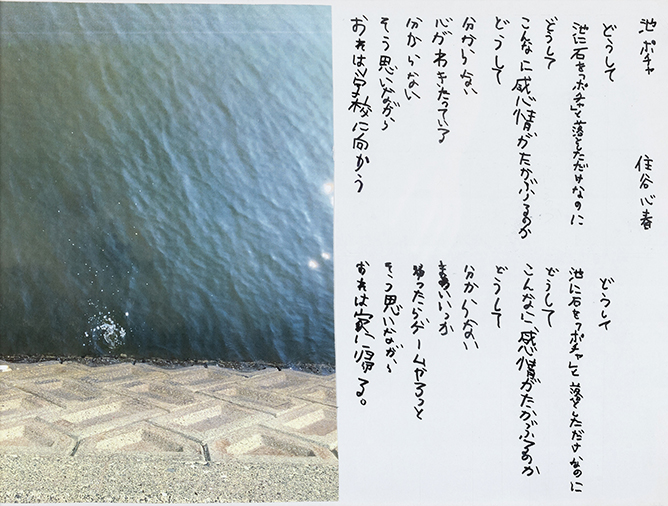 池ポチャ
住谷心春
どうして
池に石を「ポチャ」と落としただけなのに
どうして
こんなに感情がたかぶるのか
どうして
分からない
心がわきたっている
分からない
そう思いながら
おれは学校に向かう
どうして
池に石を「ポチャ」と落としただけなのに
どうして
こんなに感情がたかぶるのか
どうして
分からない
まあいいか
帰ったらゲームやろっと
そう思いながら
おれは家に帰る。